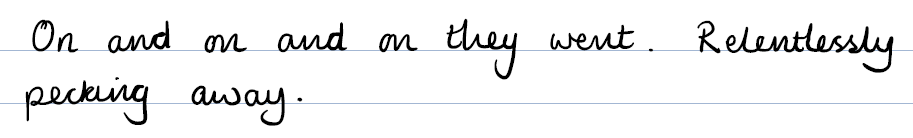 On and on and on they went. Relentlessly
pecking away.